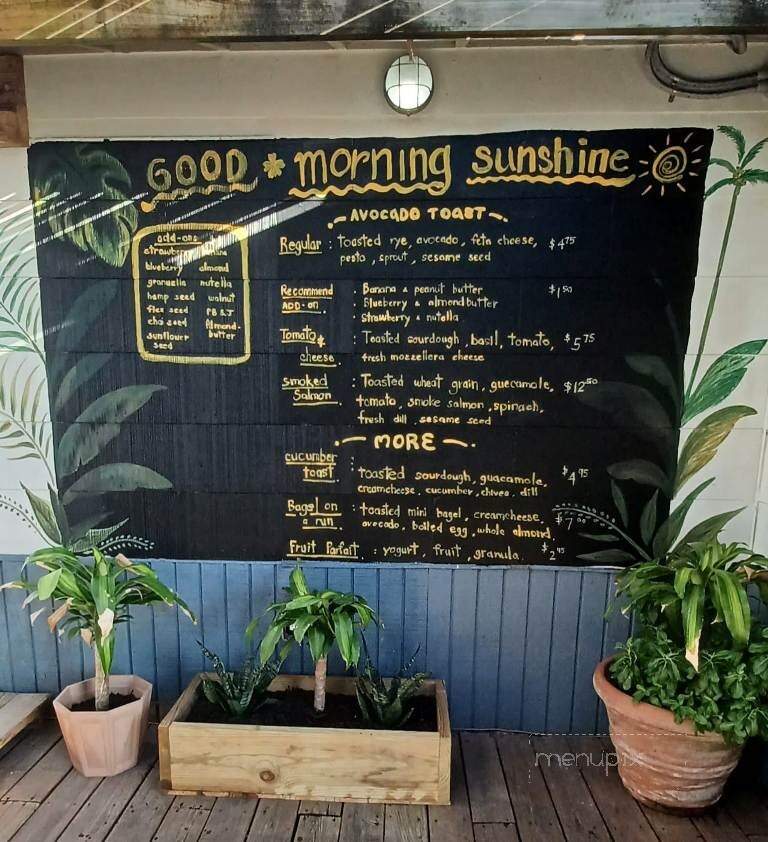 GOOD * morning sunshine
AVOCADO TOAST
add-ons
strawberry banana
blueberry almond
granuella nutella
hemp seed walnut
flex seed PB & J
chai seed Almond-
sunflower butter
seed
Regular : toasted rye, avocado, feta cheese, $4.75
pesto, sprout, sesame seed
Recommend : Banana & peanut butter $1.50
ADD-ON. : Blueberry & almond butter
: Strawberry & nutella
Tomato & : Toasted sourdough, basil, tomato, $5.75
cheese. fresh mozzellera cheese
smoked : Toasted wheat grain, guecamole, $12.50
Salmon. tomato, smoke salmon, spinach,
fresh dill, sesame seed
MORE
cucumber :
toast. toasted sourdough, guacamole, $4.95
creamcheese, cucumber, chives, dill
Bagel on : toasted mini bagel, creamcheese, $7.00
a run avocado, boiled egg, whole almond.
Fruit Parfait. : yogurt, fruit, granula. $2.95
menupix